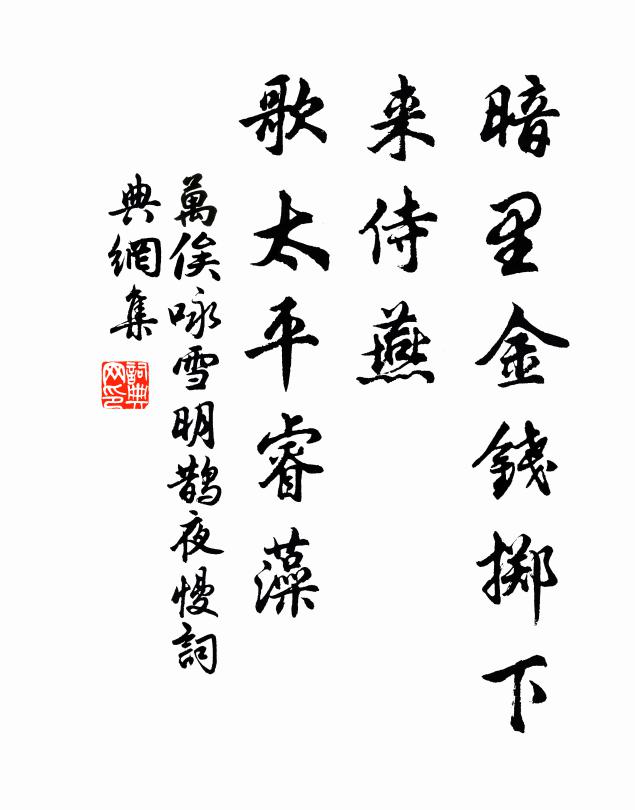 暗里金錢擲下
来侍燕
歌太平睿藻
萬俟咏雪明鹊夜慢詞
典網集
詞典
网印